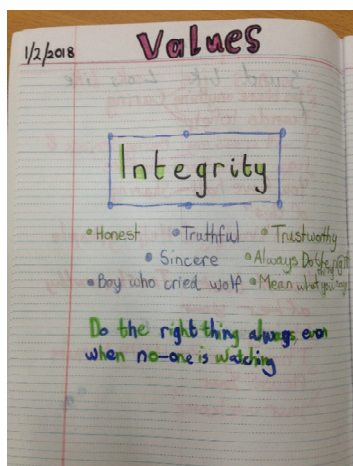 Values
1/2/2018
Integrity
• Honest • Truthful • Trustworthy
• Sincere • Always Do the right thing
• Boy who cried wolf • Mean what you say
Do the right thing always even
when no-one is watching